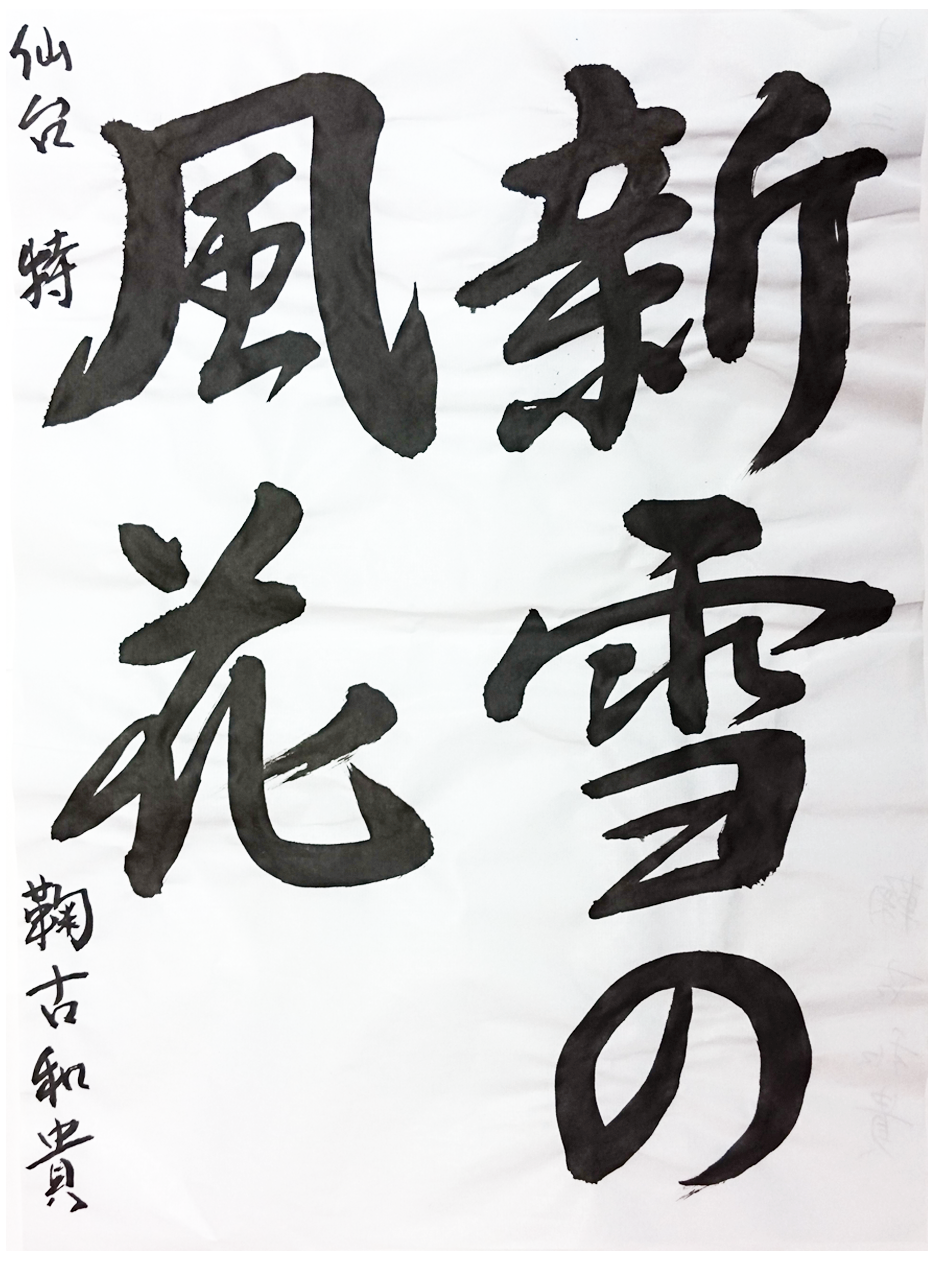 新雪の
風花
仙台 特 鞠古和貴